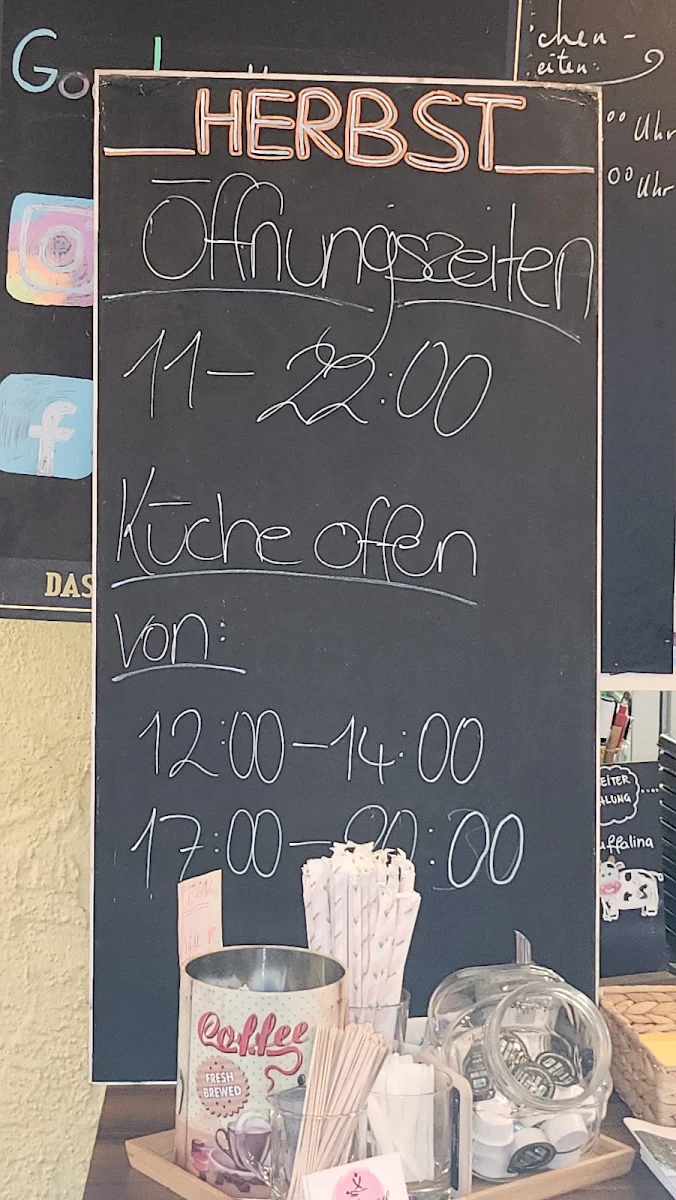 HERBST
Öffnungszeiten
11 - 22:00
Küche offen
von:
12:00 - 14:00
17:00 - 20:00
chen -
eiten:
00 Uhr
00 Uhr
DAS
Coffee
FRESH
BREWED
EITER
LUNG
ffalina